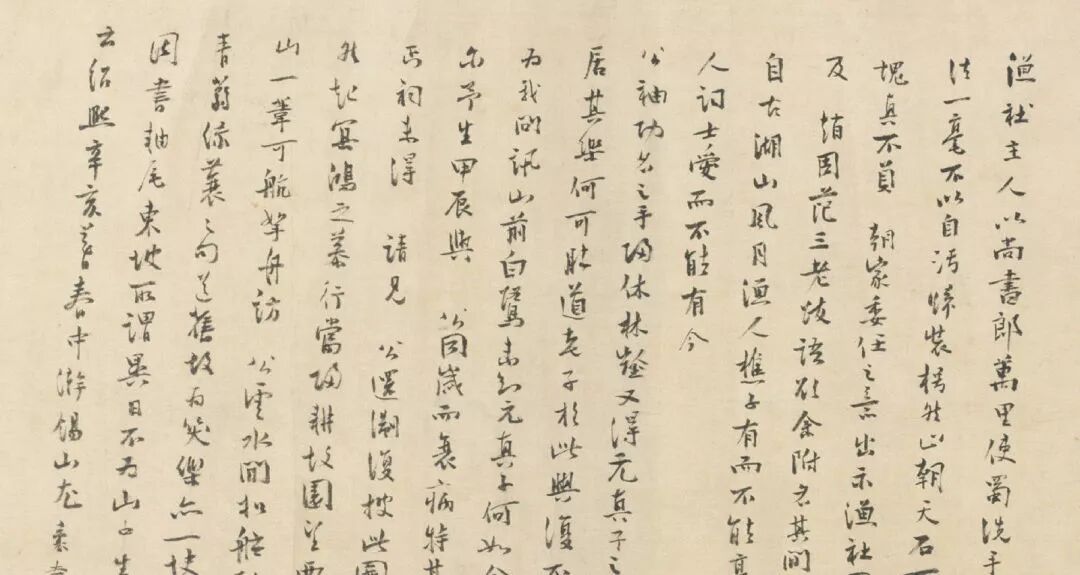 漁社主人以尚書郎萬里使蜀洗手
法一毫不以自汚歸裝楞然止朝天石
塊真不負 朝家委任之意出示漁社
及 趙閻范三老跋語欲余附名其間
自古湖山風月漁人樵子有而不能享
人詞士愛而不能有今
公袖功名之手歸休林壑又得元真子之
居其樂何可勝道老子於此興復不
為我問訊山前白鷺未知元真子何如今
也予生甲辰與 公同歲而衰病特甚
丐祠未得 請見 公還溯復披此圖
然起冥鴻之慕行當歸耕故園望西
山一葦可航拏舟訪 公雲水間扣舷
青蒻綠蓑之句道舊故為笑樂亦一快
因書軸尾東坡所謂異日不為山中生
云紹熙辛亥暮春中澣錫山尤袤